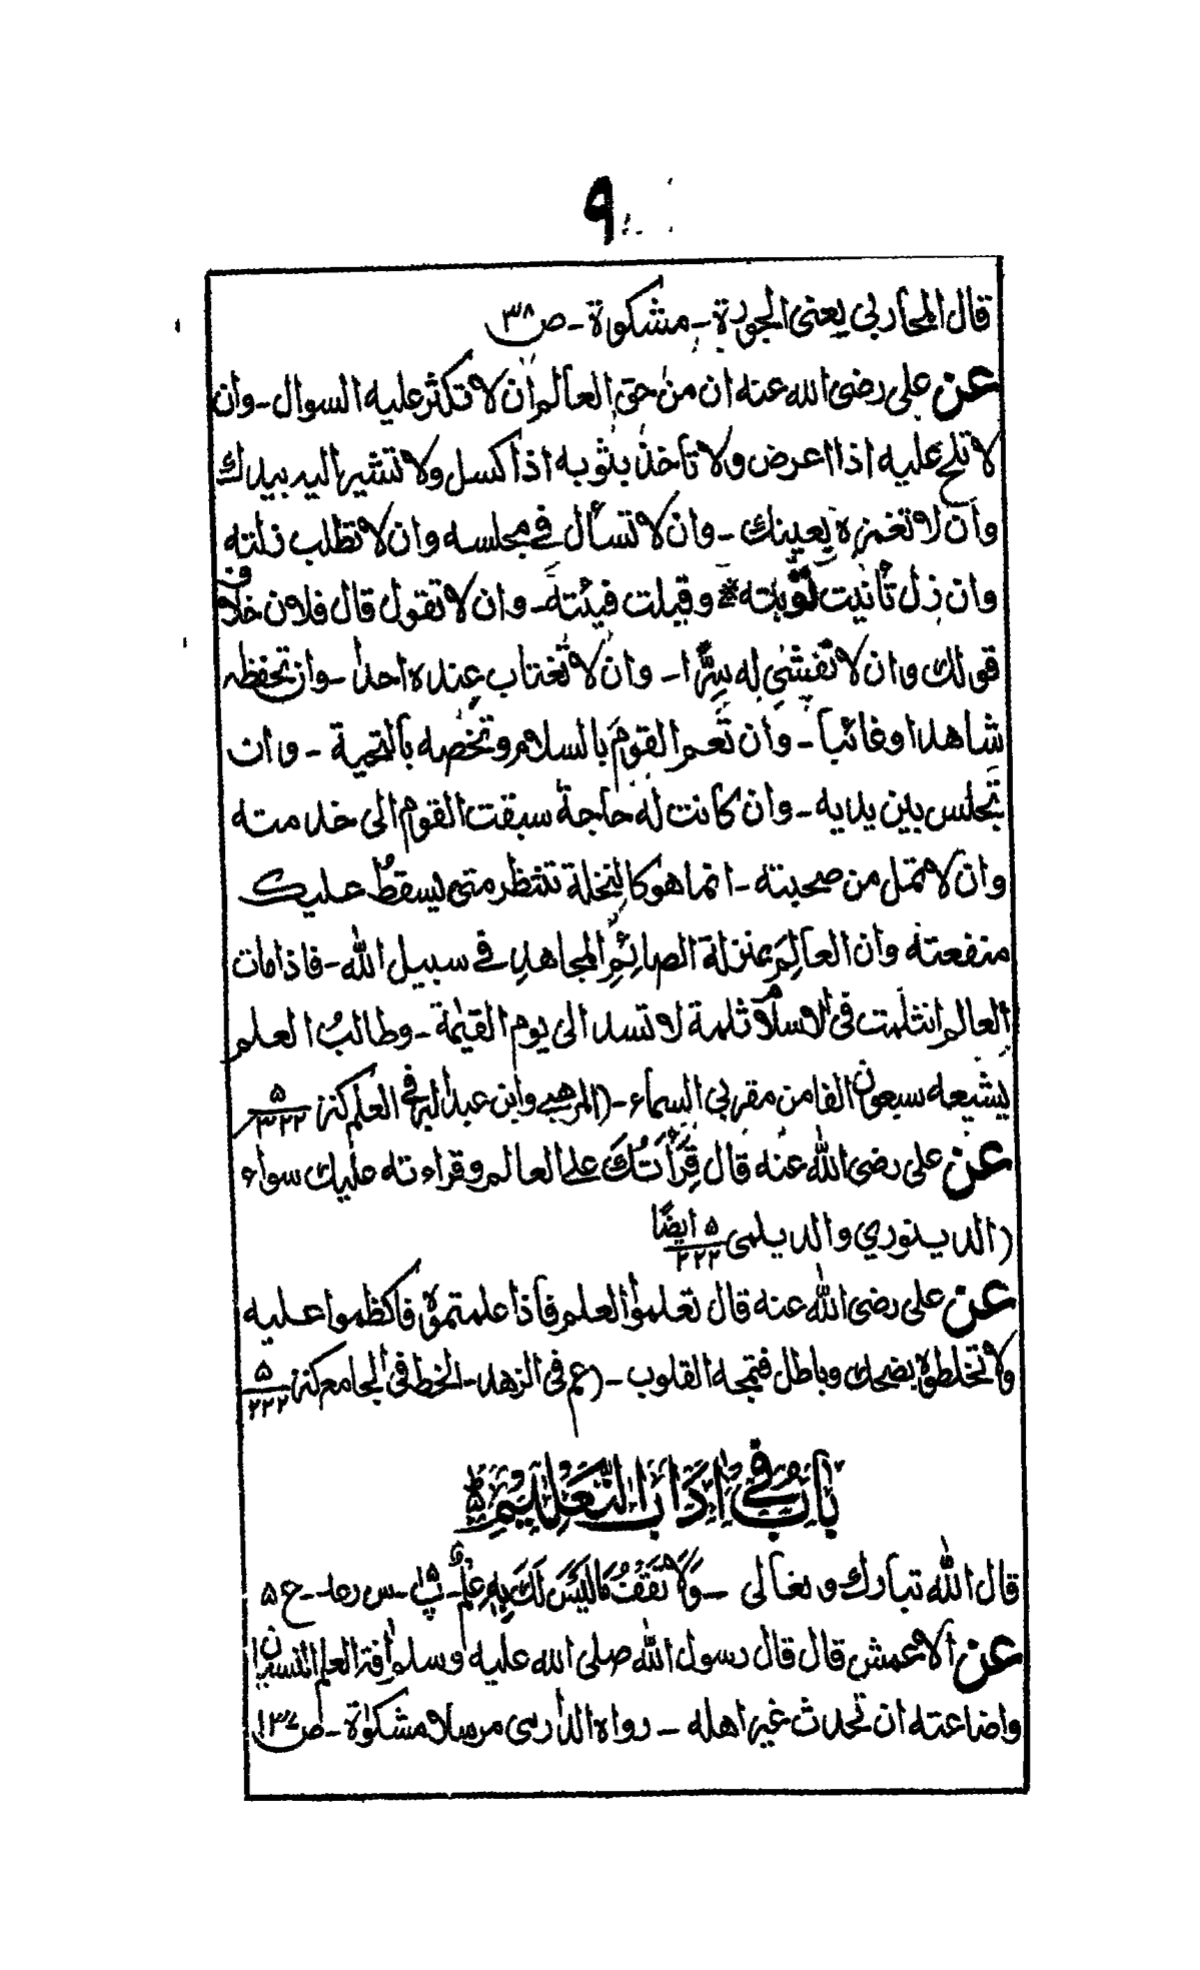 ۹
قال المحاربي يعنى الجورة ـ مشكوة ـ ص ۳۸
عن على رضى الله عنه ان من حق العالم ان لا تكثر عليه السوال ـ وان
لا تلح عليه اذا اعرض ولا تأخذ بثوبه اذا كسل ولا تشير اليه بيدك
وان لا تغمزه بعينك ـ وان لا تسأل في مجلسه وان لا تطلب زلته
وان زل تأنيت توبته وقبلت فيئته ـ وان لا تقول قال فلان خلاف
قولك وان لا تفشي له سرا ـ وان لا تغتاب عنده احدا ـ وان تحفظه
شاهدا وغائبا ـ وان تعم القوم بالسلام وتخصه بالتحية ـ وان
تجلس بين يديه ـ وان كانت له حاجة سبقت القوم الى خدمته
وان لا تمل من صحبته ـ انما هو كالنخلة تنتظر متى يسقط عليك
منفعته وان العالم بمنزلة الصائم المجاهد في سبيل الله ـ فاذا مات
العالم انثلمت في الاسلام ثلمة لا تسد الى يوم القيمة ـ وطالب العلم
يشيعه سبعون الفا من مقربي السماء ـ (المرهبي وابن عبد البر في العلم كنز ۵/۲۲۲
عن على رضى الله عنه قال قرأتك على العالم وقراءته عليك سواء
(الدينوري والديلمى ۵/۲۲۲ ايضًا
عن على رضى الله عنه قال تعلموا العلم فاذا علمتموه فاكظموا عليه
ولا تخلطوه بضحك وباطل فتمجه القلوب ـ (عم فى الزهد ـ الخط فى الجامع كنز ۵/۲۲۲
باب في اداب التعليم
قال الله تبارك وتعالى ـ وَلَا تَقْفُ مَا لَيْسَ لَكَ بِهٖ عِلْمٌ ـ پ ۱۵ ـ س ـ ح ۵
عن الاعمش قال قال رسول الله صلى الله عليه وسلم افة العلم النسيان
واضاعته ان تحدث غير اهله ـ رواه الدارمى مرسلا مشكوة ـ ص ۳۷